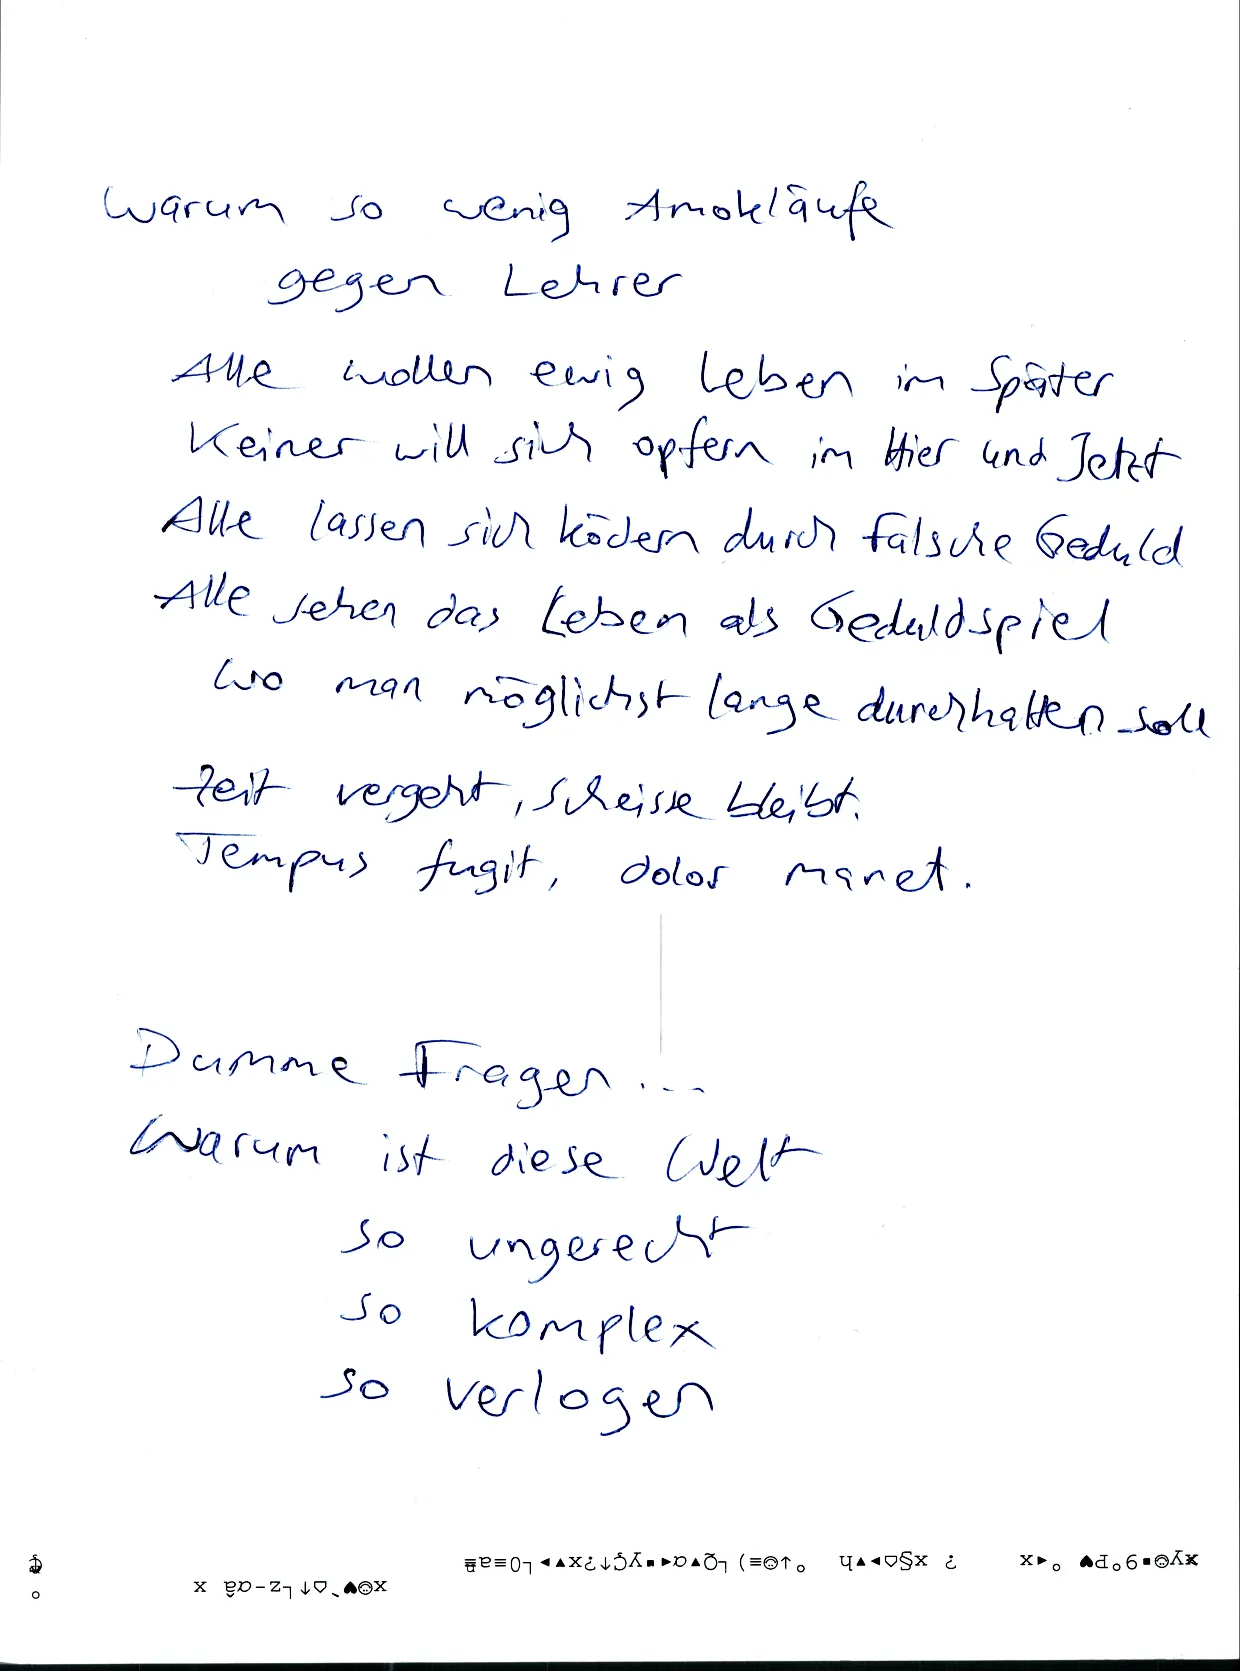 Warum so wenig Amokläufe
gegen Lehrer
Alle wollen ewig leben im Später
Keiner will sich opfern im Hier und Jetzt
Alle lassen sich ködern durch falsche Geduld
Alle sehen das Leben als Geduldspiel
wo man möglichst lange durchhalten soll
Zeit vergeht, Scheisse bleibt.
Tempus fugit, dolor manet.
Dumme Fragen...
Warum ist diese Welt
so ungerecht
so komplex
so verlogen